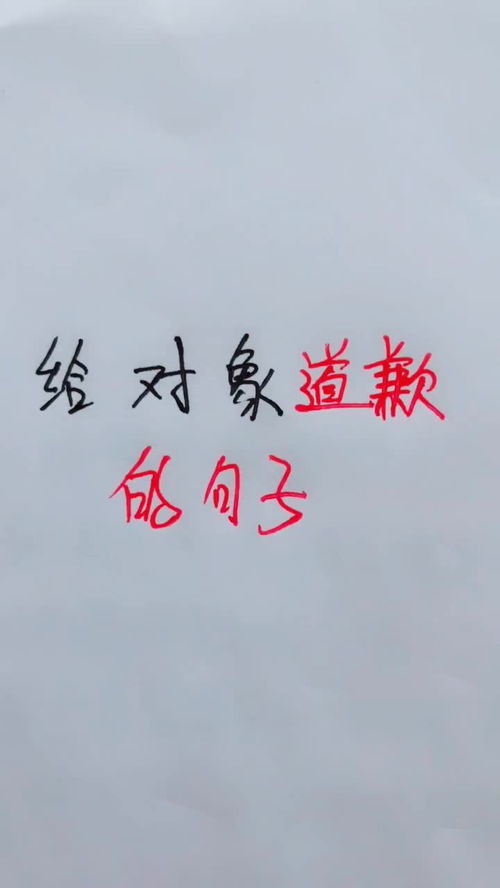 给对象道歉
的句子